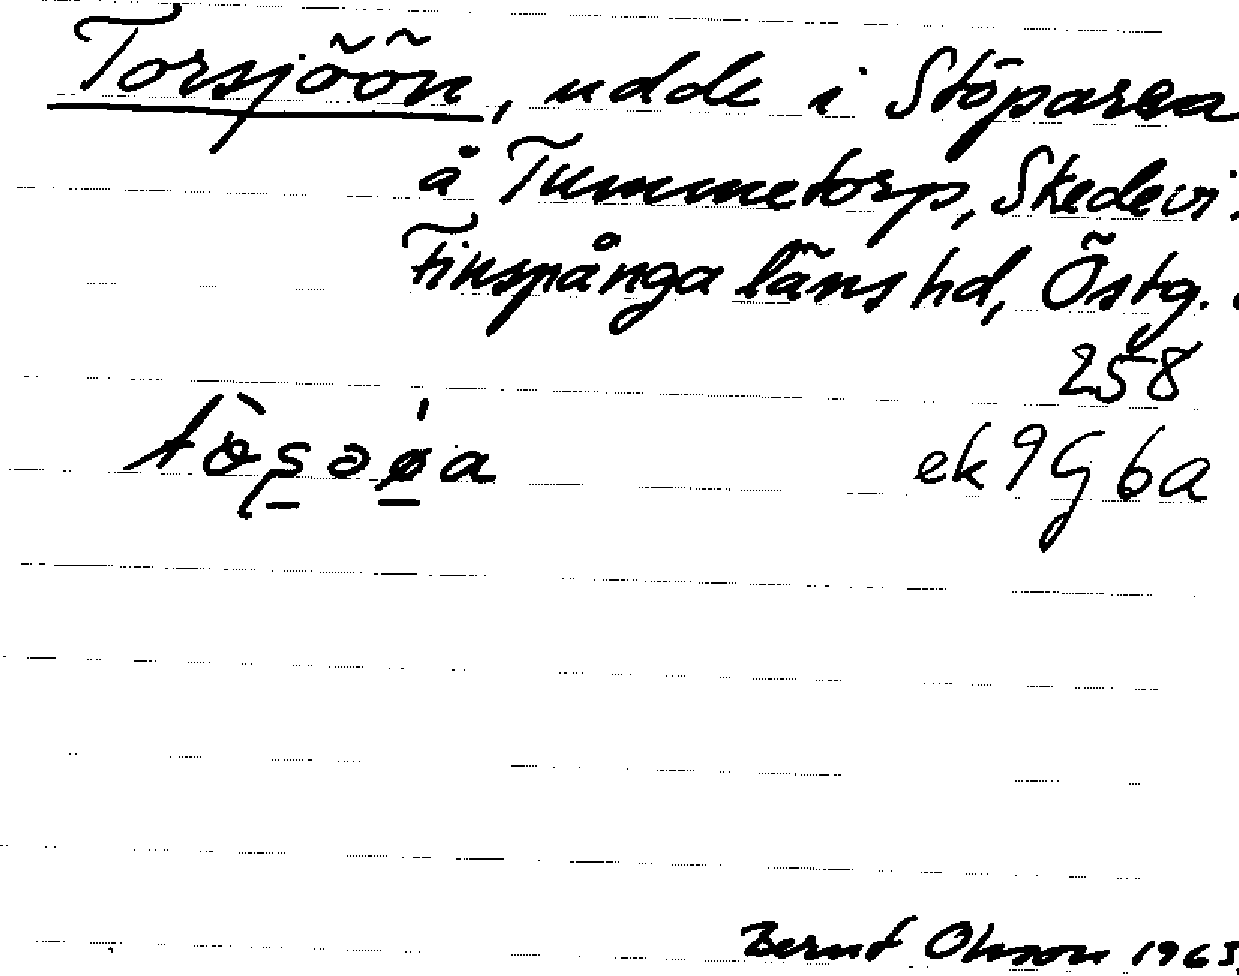 Torsjöön, udde i Stöparen
å Tummetorp, Skedevi.
Finspånga läns hd, Östg.
258
ek 9G6a
Bernt Olsson 1963